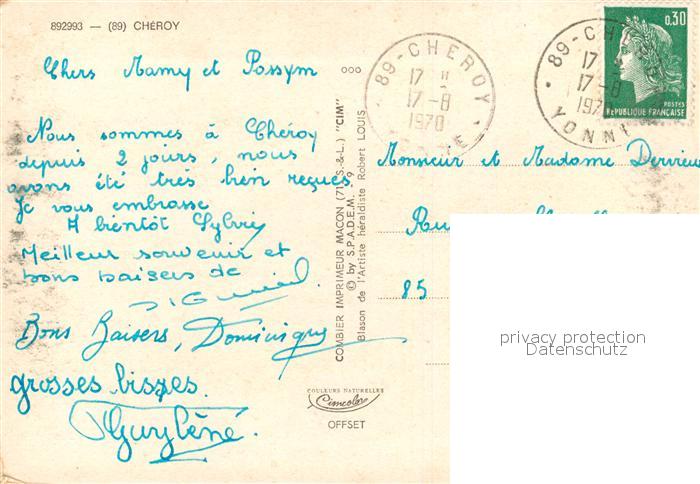 892993 — (89) CHÉROY
Chers Mamy et Possym
Nous sommes à Chéroy
depuis 2 jours, nous
avons été très bien reçues
Je vous embrasse
A bientôt Sylvie
Meilleur souvenir et
bons baisers de
Bons Baisers, Dominique
grosses bisses.
Guylène.
ooo
COMBIER IMPRIMEUR MACON (71 S.-&-L.) "CIM"
© by S.P.A.D.E.M. - 9
Blason de l'Artiste héraldiste Robert LOUIS
COULEURS NATURELLES
Cimcolor
OFFSET
89-CHEROY
17 H
17-8
1970
89-CH
17
17-8
YONN
0,30
POSTES
REPUBLIQUE FRANÇAISE
Monsieur et Madame
85
privacy protection
Datenschutz